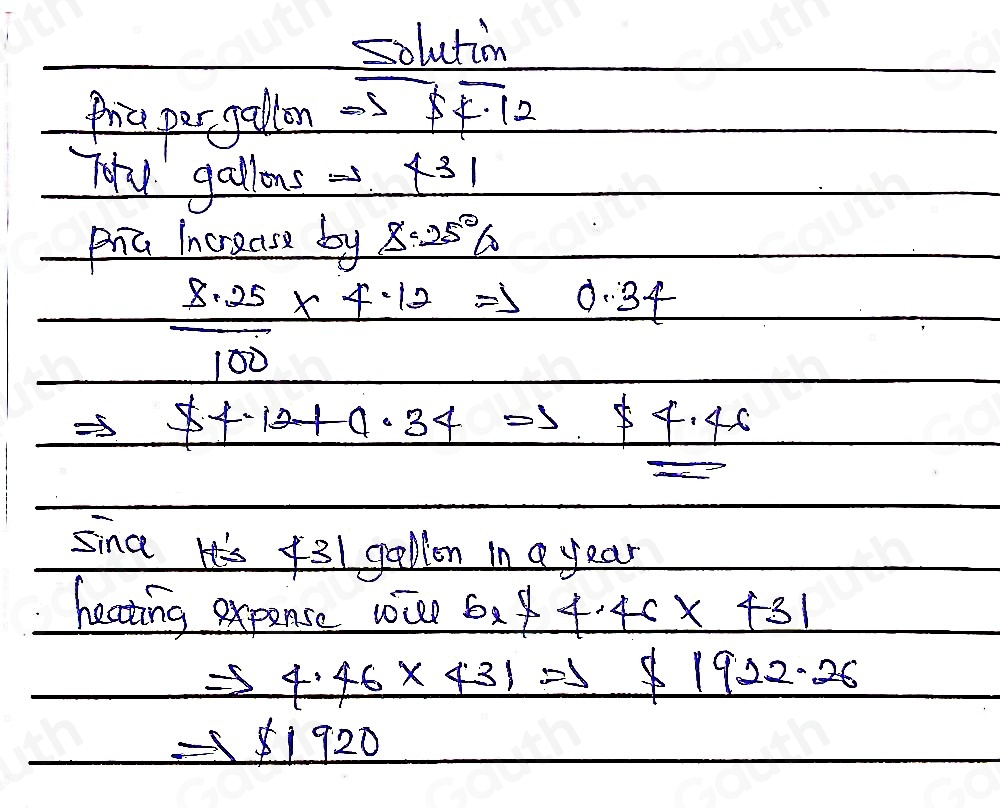 Solution
Price per gallon => $4.12
Total gallons => 431
Price Increase by 8.25%
8.25 x 4.12 => 0.34
100
=> $4.12+0.34 => $4.46
Since It's 431 gallon in a year
heating expense will be $4.46 x 431
=> 4.46 x 431 => $1922.26
=> $1920